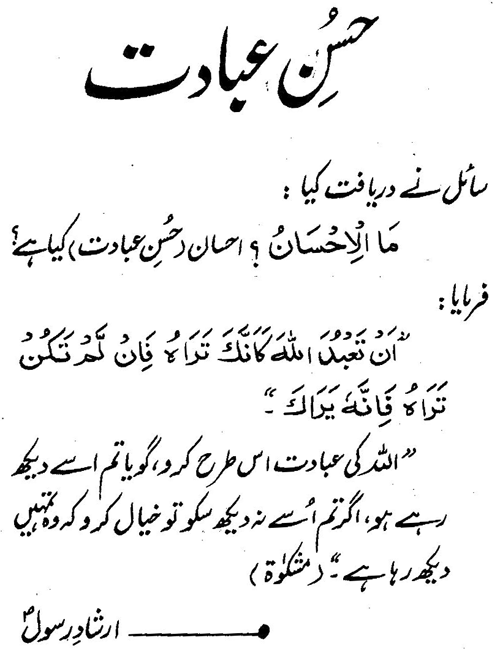 حسنِ عبادت
سائل نے دریافت کیا :
مَا الْاِحْسَانُ ؟ احسان (حُسنِ عبادت) کیا ہے؟
فرمایا :
”اَنْ تَعْبُدَ اللہَ کَاَنَّکَ تَرَاہُ فَاِنْ لَّمْ تَکُنْ
تَرَاہُ فَاِنَّہٗ یَرَاکَ ۔“
”اللہ کی عبادت اس طرح کرو، گویا تم اسے دیکھ
رہے ہو، اگر تم اُسے نہ دیکھ سکو تو خیال کرو کہ وہ تمہیں
دیکھ رہا ہے ۔“ (مشکوٰۃ)
ارشادِ رسولؐ